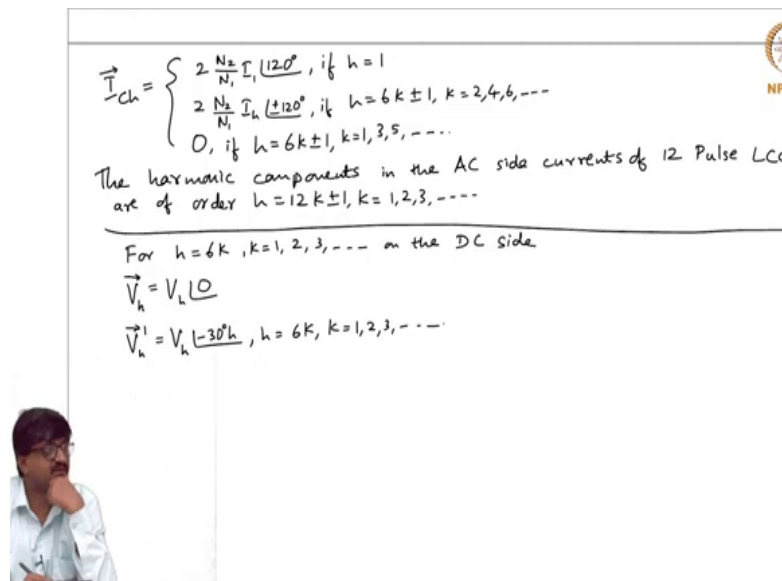 I⃗_Ch = { 2 N₂/N₁ I₁ ∠120°, if h = 1
2 N₂/N₁ I_h ∠±120°, if h = 6k ± 1, k = 2, 4, 6, ----
0, if h = 6k ± 1, k = 1, 3, 5, ----
The harmonic components in the AC side currents of 12 Pulse LCC
are of order h = 12k ± 1, k = 1, 2, 3, ----
For h = 6k, k = 1, 2, 3, --- on the DC side
V⃗_h = V_h ∠0
V⃗_h' = V_h ∠-30°h, h = 6k, k = 1, 2, 3, ----